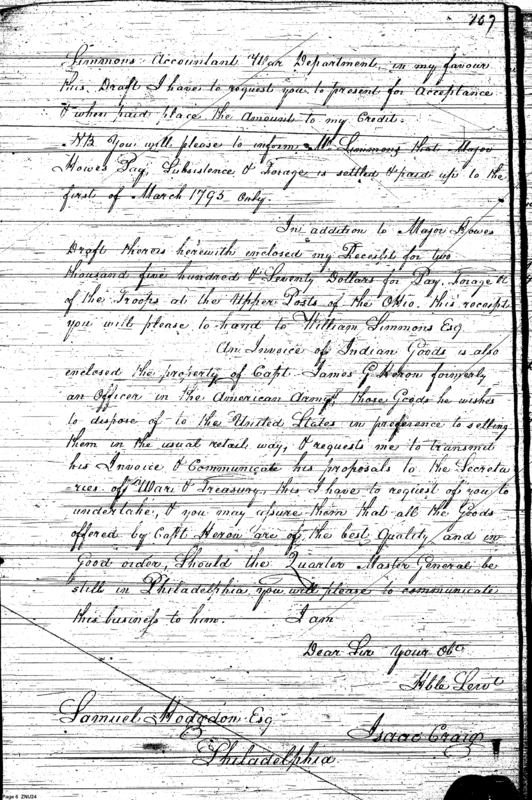 167
Simmons Accountant War Department, in my favour
this Draft I have to request you to present for Acceptance
& when paid place the Amount to my Credit.
NB You will please to inform Mr. Simmons that Major
Howes Pay, Subsistence & Forage is settled & paid up to the
first of March 1795 only.
In addition to Major Howes
Draft there is herewith enclosed my Receipt for two
thousand five hundred & Seventy Dollars for Pay, Forage &c
of the Troops at the Upper Posts of the Ohio. this receipt
you will please to hand to William Simmons Esq
An Invoice of Indian Goods is also
enclosed the property of Capt. James G Heron formerly
an Officer in the American Army, those Goods he wishes
to dispose of to the United States in preference to selling
them in the usual retail way, & requests me to transmit
his Invoice & Communicate his proposals to the Secreta
-ries of War & Treasury, this I have to request of you to
undertake, & you may assure them that all the Goods
offered by Capt Heron are of the best Quality and in
Good order, Should the Quarter Master General be
still in Philadelphia you will please to communicate
this business to him. I am
Dear Sir Your Obt
Hble Servt
Samuel Hodgdon Esq
Isaac Craig
Philadelphia
Page 6 ZNU24